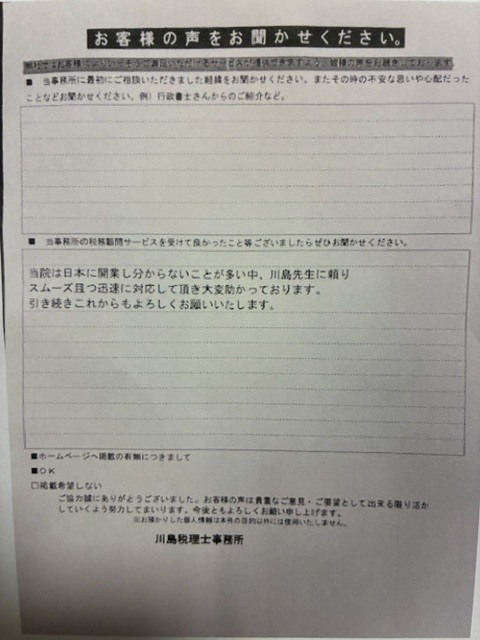 お客様の声をお聞かせください。
弊社ではお客様によりいっそうご満足いただけるサービスが提供できますよう、皆様の声をお聴きしております。
■ 当事務所に最初にご相談いただきました経緯をお聞かせください。またその時の不安な思いや心配だった
ことなどお聞かせください。例）行政書士さんからのご紹介など。
■ 当事務所の税務顧問サービスを受けて良かったこと等ございましたらぜひお聞かせください。
当院は日本に開業し分からないことが多い中、川島先生に頼り
スムーズ且つ迅速に対応して頂き大変助かっております。
引き続きこれからもよろしくお願いいたします。
■ホームページへ掲載の有無につきまして
■OK
□掲載希望しない
ご協力誠にありがとうございました。お客様の声は貴重なご意見・ご要望として出来る限り活か
していくよう努力してまいります。今後ともよろしくお願い申し上げます。
※お預かりした個人情報は本件の目的以外には使用いたしません。
川島税理士事務所